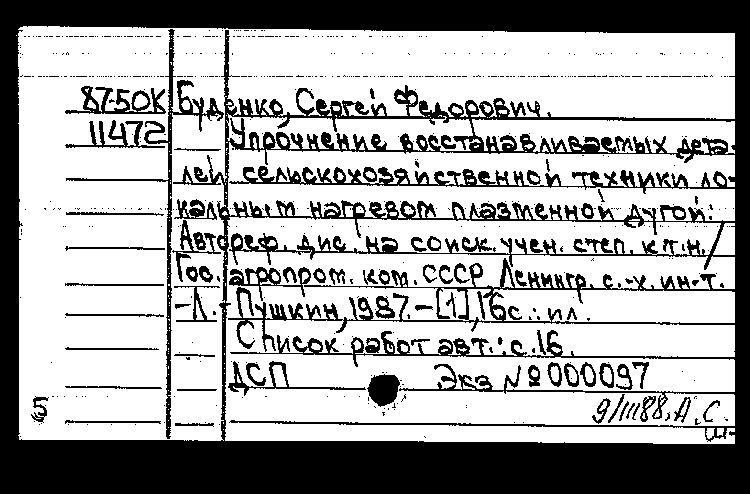 87-50К Буденко, Сергей Федорович.
11472 Упрочнение восстанавливаемых дета-
лей сельскохозяйственной техники ло-
кальным нагревом плазменной дугой:
Автореф. дис. на соиск. учен. степ. к.т.н. /
Гос. агропром. ком. СССР, Ленингр. с.-х. ин-т.
-Л. - Пушкин, 1987. - [1], 16с.: ил.
Список работ авт.: с. 16.
ДСП Экз № 000097
9/III88. А. С.